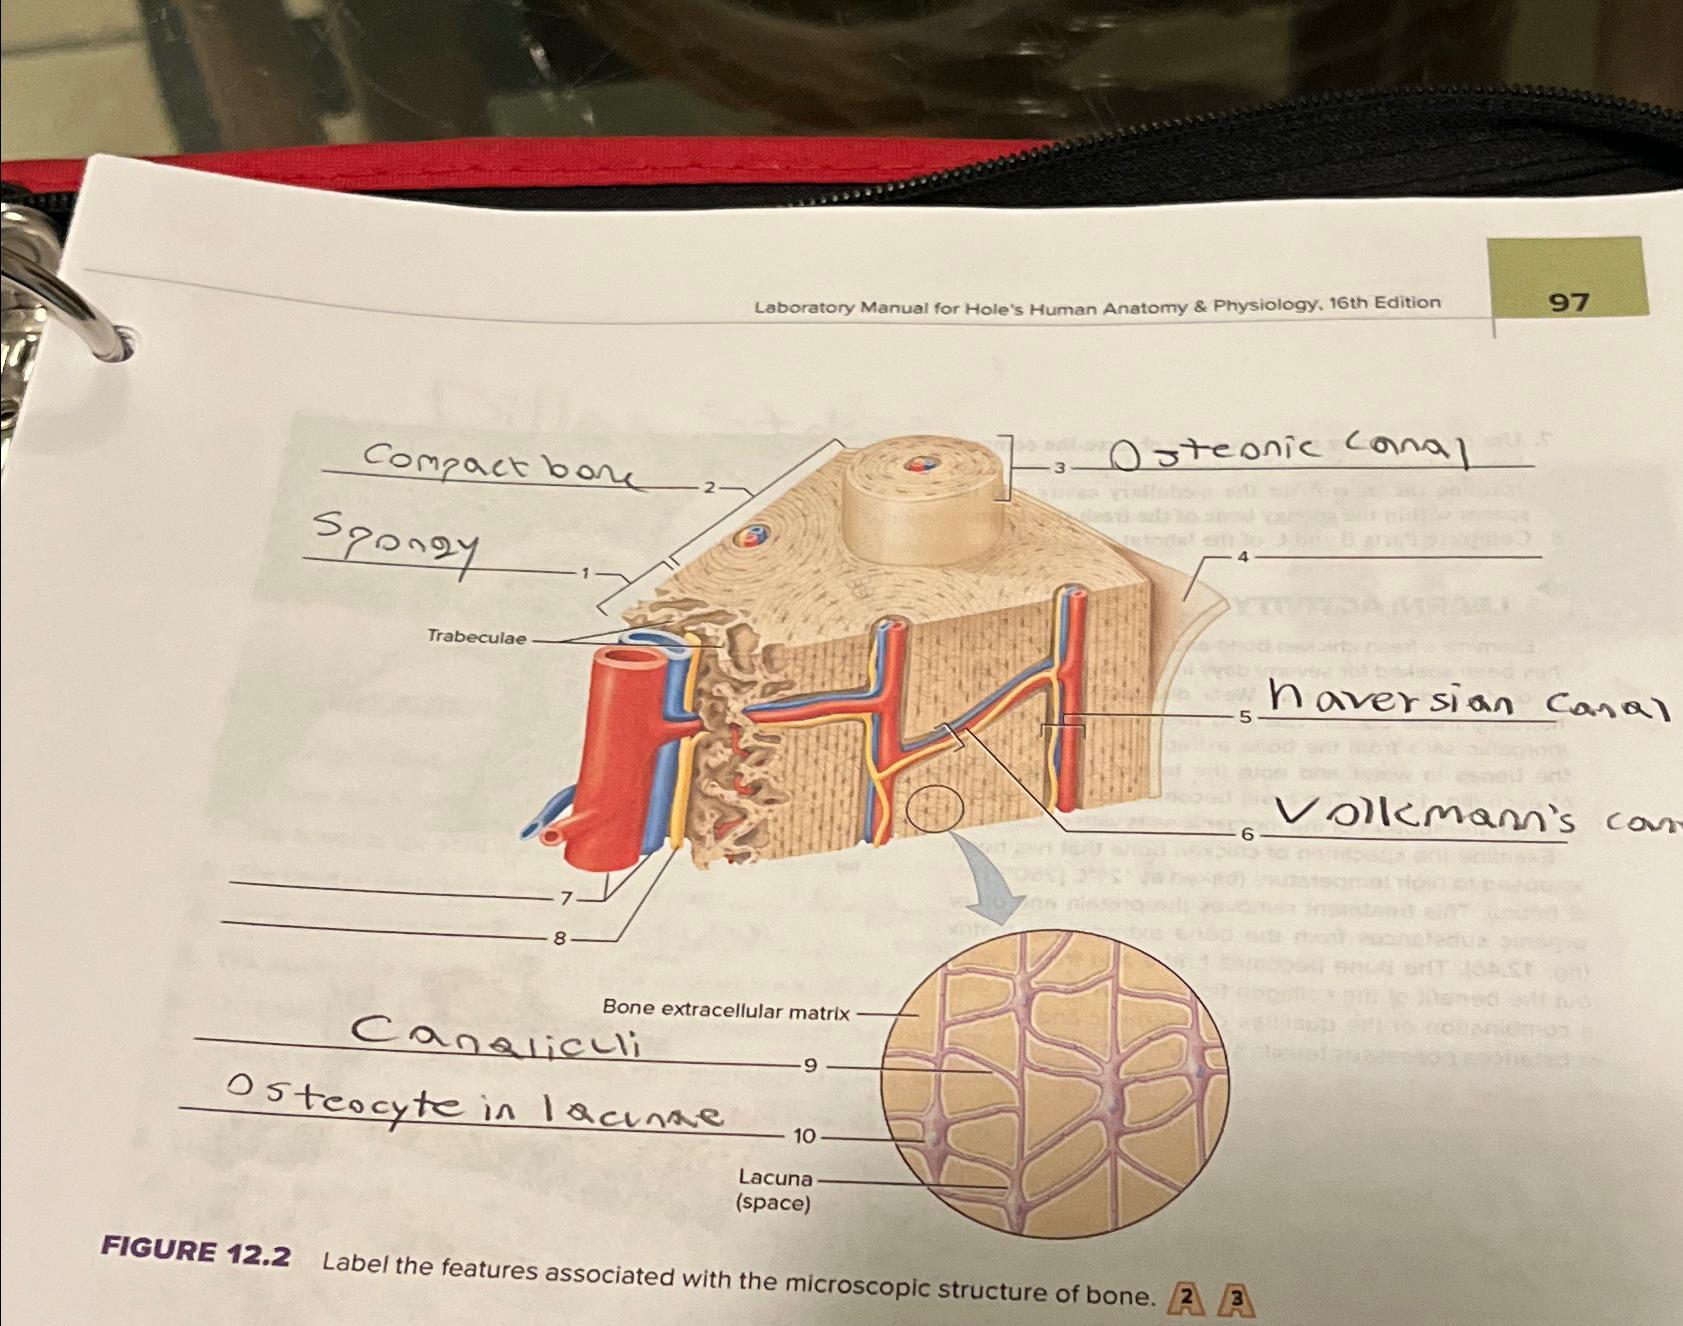 Laboratory Manual for Hole's Human Anatomy & Physiology, 16th Edition
97
Compact bone 2
3 Osteonic Canal
Spongy 1
4
Trabeculae
5 haversian Canal
6 Volkmann's can
7
8
Bone extracellular matrix
Canaliculi 9
Osteocyte in lacunae 10
Lacuna
(space)
FIGURE 12.2 Label the features associated with the microscopic structure of bone. 2 3